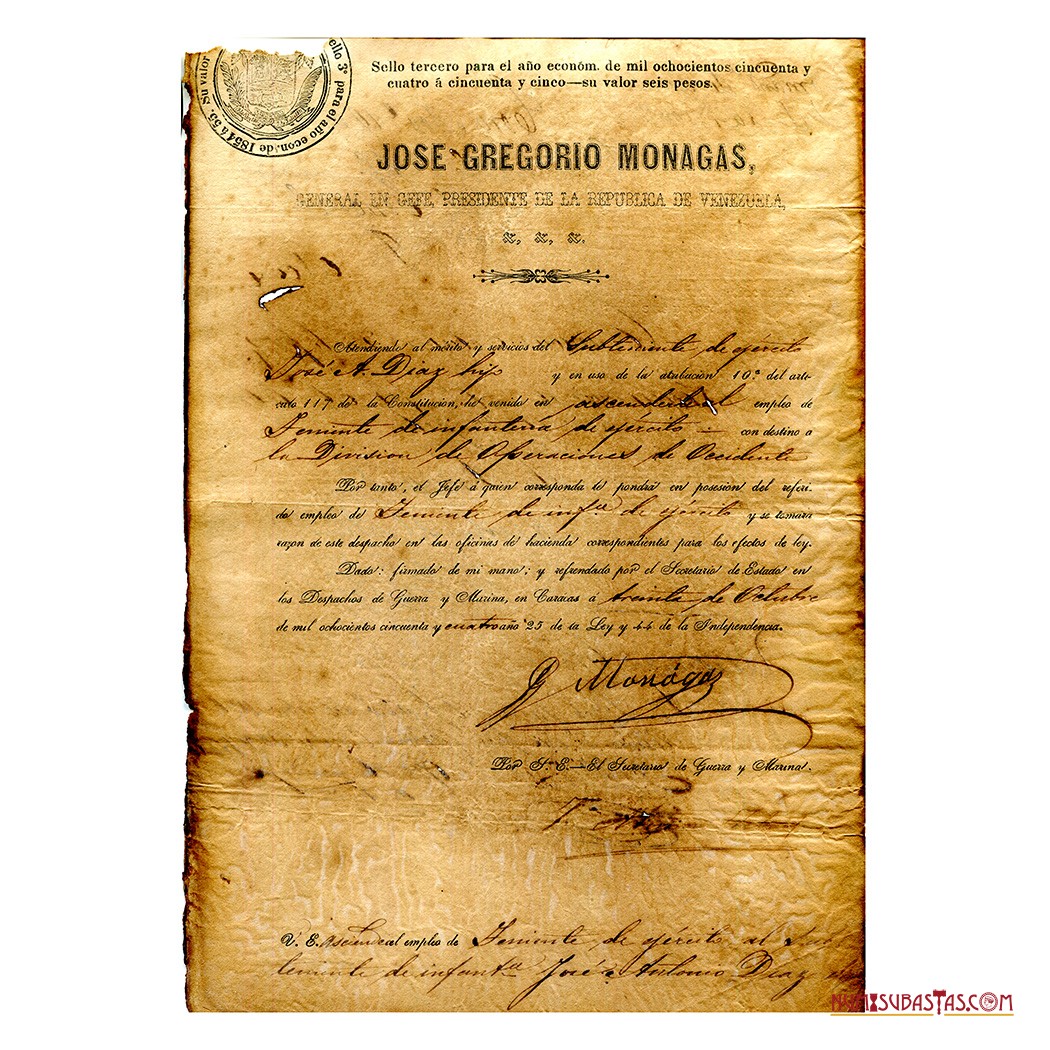 ello 3º para el año econ. de 1854 á 55. Su valor
Sello tercero para el año económ. de mil ochocientos cincuenta y
cuatro á cincuenta y cinco—su valor seis pesos.
JOSE GREGORIO MONAGAS,
GENERAL EN GEFE, PRESIDENTE DE LA REPUBLICA DE VENEZUELA,
&, &, &.
Atendiendo al mérito y servicios del Subteniente de ejército
José A. Diaz hijo y en uso de la atribucion 10.ª del artí-
culo 117 de la Constitucion, he venido en ascenderle al empleo de
Teniente de infantería de ejército — con destino a
la Division de Operaciones de Occidente
Por tanto, el Jefe á quien corresponda le pondrá en posesión del referi-
do empleo de Teniente de inf.ª de ejército y se tomará
razon de este despacho en las oficinas de hacienda correspondientes para los efectos de ley.
Dado: firmado de mi mano; y refrendado por el Secretario de Estado en
los Despachos de Guerra y Marina, en Caracas á treinta de Octubre
de mil ochocientos cincuenta y cuatro año 25 de la Ley y 44 de la Independencia.
J G Monágas
Por S. E.—El Secretario de Guerra y Marina.
V. E. asciende al empleo de Teniente de ejército al Sub
teniente de infant.ª José Antonio Diaz
NUMISUBASTAS.COM